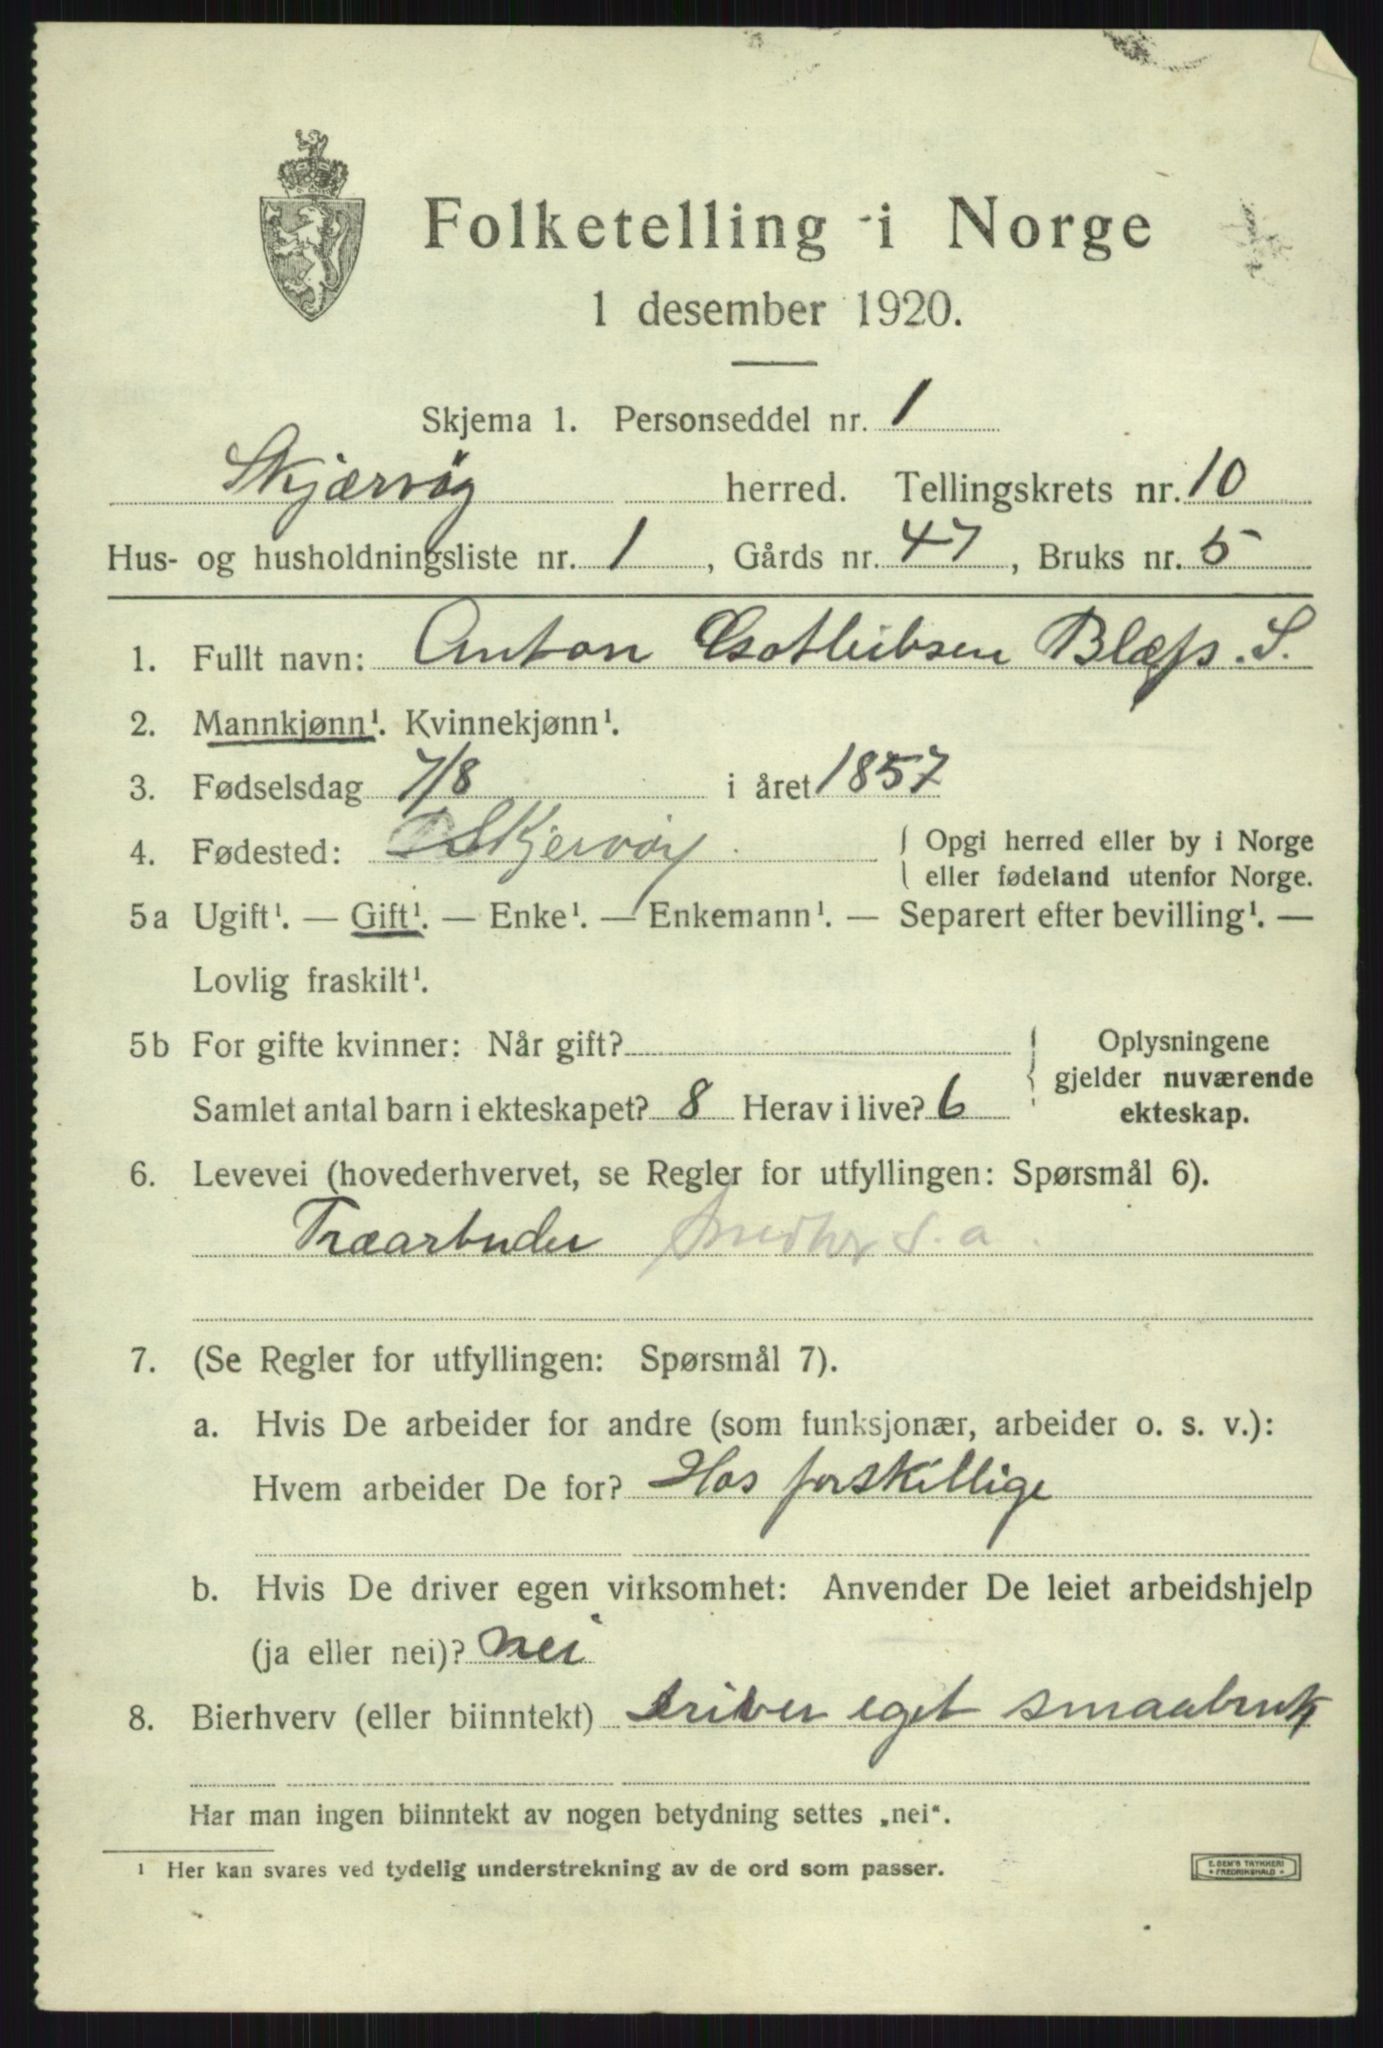 Folketelling i Norge
1 desember 1920.
Skjema 1. Personseddel nr. 1
Skjærvøy herred. Tellingskrets nr. 10
Hus- og husholdningsliste nr. 1, Gårds nr. 47, Bruks nr. 5
1. Fullt navn: Anton Gotleibsen S.
2. Mannkjønn¹. Kvinnekjønn¹.
3. Fødselsdag 7/8 i året 1857
4. Fødested: Skjervøy. { Opgi herred eller by i Norge
eller fødeland utenfor Norge.
5a Ugift¹. — Gift¹. — Enke¹. — Enkemann¹. — Separert efter bevilling¹. —
Lovlig fraskilt¹.
5b For gifte kvinner: Når gift? { Oplysningene
gjelder nuværende
Samlet antal barn i ekteskapet? 8 Herav i live? 6
ekteskap.
6. Levevei (hovederhvervet, se Regler for utfyllingen: Spørsmål 6).
Træarbeider s.a.
7. (Se Regler for utfyllingen: Spørsmål 7).
a. Hvis De arbeider for andre (som funksjonær, arbeider o. s. v.):
Hvem arbeider De for? Hos forskillige
b. Hvis De driver egen virksomhet: Anvender De leiet arbeidshjelp
(ja eller nei)? nei
8. Bierhverv (eller biinntekt) driver eget smaabruk
Har man ingen biinntekt av nogen betydning settes „nei“.
¹ Her kan svares ved tydelig understrekning av de ord som passer.
E. SEM'S TRYKKERI
FREDRIKSHALD